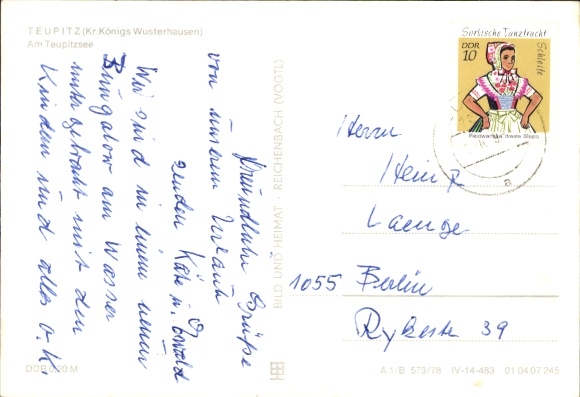 TEUPITZ (Kr. Königs Wusterhausen)
Am Teupitzsee
Freundliche Grüße
von unserem Urlaub
senden Käte u. Ewald
Wir sind in einem neuen
Bungalow am Wasser
untergebracht mit den
Kindern sind alles o.K.
DDB 0,20 M
BILD UND HEIMAT · REICHENBACH (VOGTL)
Sorbische Tanztracht
DDR
10
Schleife
Herrn
Heinz
Laenge
1055 Berlin
Rykestr 39
A 1/B 573/78 IV-14-483 01 04 07 245